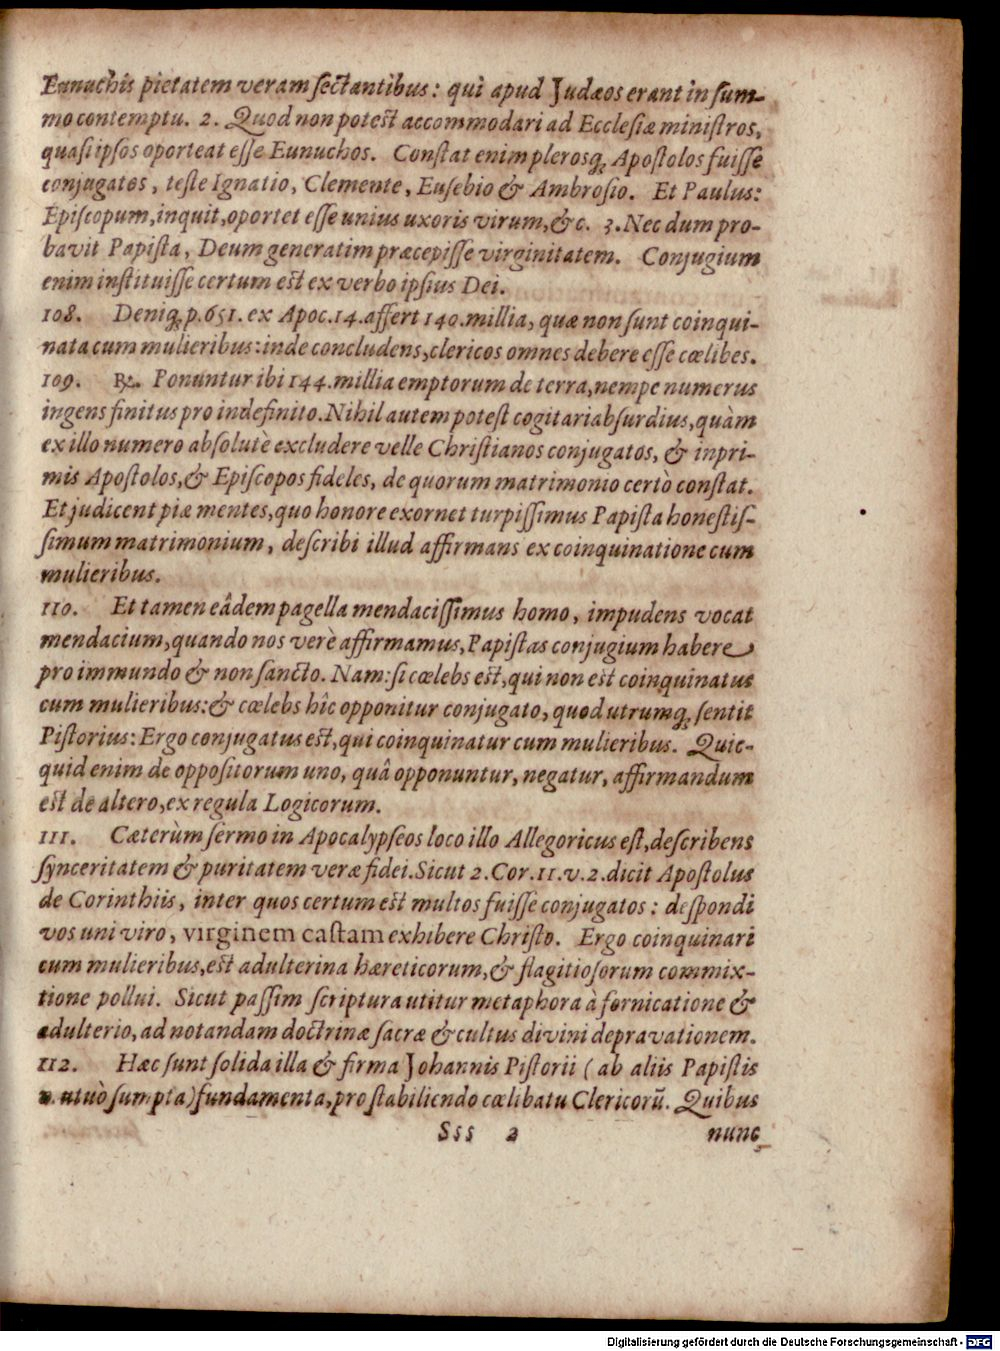 Eunuchis pietatem veram sectantibus: qui apud Judæos erant in sum-
mo contemptu. 2. Quod non potest accommodari ad Ecclesiæ ministros,
quasi ipsos oporteat esse Eunuchos. Constat enim plerosq; Apostolos fuisse
conjugatos, teste Ignatio, Clemente, Eusebio & Ambrosio. Et Paulus:
Episcopum, inquit, oportet esse unius uxoris virum, &c. 3. Nec dum pro-
bavit Papista, Deum generatim præcepisse virginitatem. Conjugium
enim instituisse certum est ex verbo ipsius Dei.
108. Deniq; p. 651. ex Apoc. 14. affert 140. millia, quæ non sunt coinqui-
nata cum mulieribus: inde concludens, clericos omnes debere esse cœlibes.
109. ℞. Ponuntur ibi 144. millia emptorum de terra, nempe numerus
ingens finitus pro indefinito. Nihil autem potest cogitari absurdius, quàm
ex illo numero absolutè excludere velle Christianos conjugatos, & inpri-
mis Apostolos, & Episcopos fideles, de quorum matrimonio certò constat.
Et judicent piæ mentes, quo honore exornet turpissimus Papista honestis-
simum matrimonium, describi illud affirmans ex coinquinatione cum
mulieribus.
110. Et tamen eâdem pagella mendacissimus homo, impudens vocat
mendacium, quando nos verè affirmamus, Papistas conjugium habere
pro immundo & non sancto. Nam: si cœlebs est, qui non est coinquinatus
cum mulieribus: & cœlebs hîc opponitur conjugato, quod utrumq; sentit
Pistorius: Ergo conjugatus est, qui coinquinatur cum mulieribus. Quic-
quid enim de oppositorum uno, quâ opponuntur, negatur, affirmandum
est de altero, ex regula Logicorum.
111. Cæterùm sermo in Apocalypseos loco illo Allegoricus est, describens
synceritatem & puritatem veræ fidei. Sicut 2. Cor. 11. v. 2. dicit Apostolus
de Corinthiis, inter quos certum est multos fuisse conjugatos: despondi
vos uni viro, virginem castam exhibere Christo. Ergo coinquinari
cum mulieribus, est adulterina hæreticorum, & flagitiosorum commix-
tione pollui. Sicut passim scriptura utitur metaphora à fornicatione &
adulterio, ad notandam doctrinæ sacræ & cultus divini depravationem.
112. Hæc sunt solida illa & firma Johannis Pistorii (ab aliis Papistis
mutuò sumpta) fundamenta, pro stabiliendo cœlibatu Clericorũ. Quibus
Sss 2 nunc
Digitalisierung gefördert durch die Deutsche Forschungsgemeinschaft - DFG